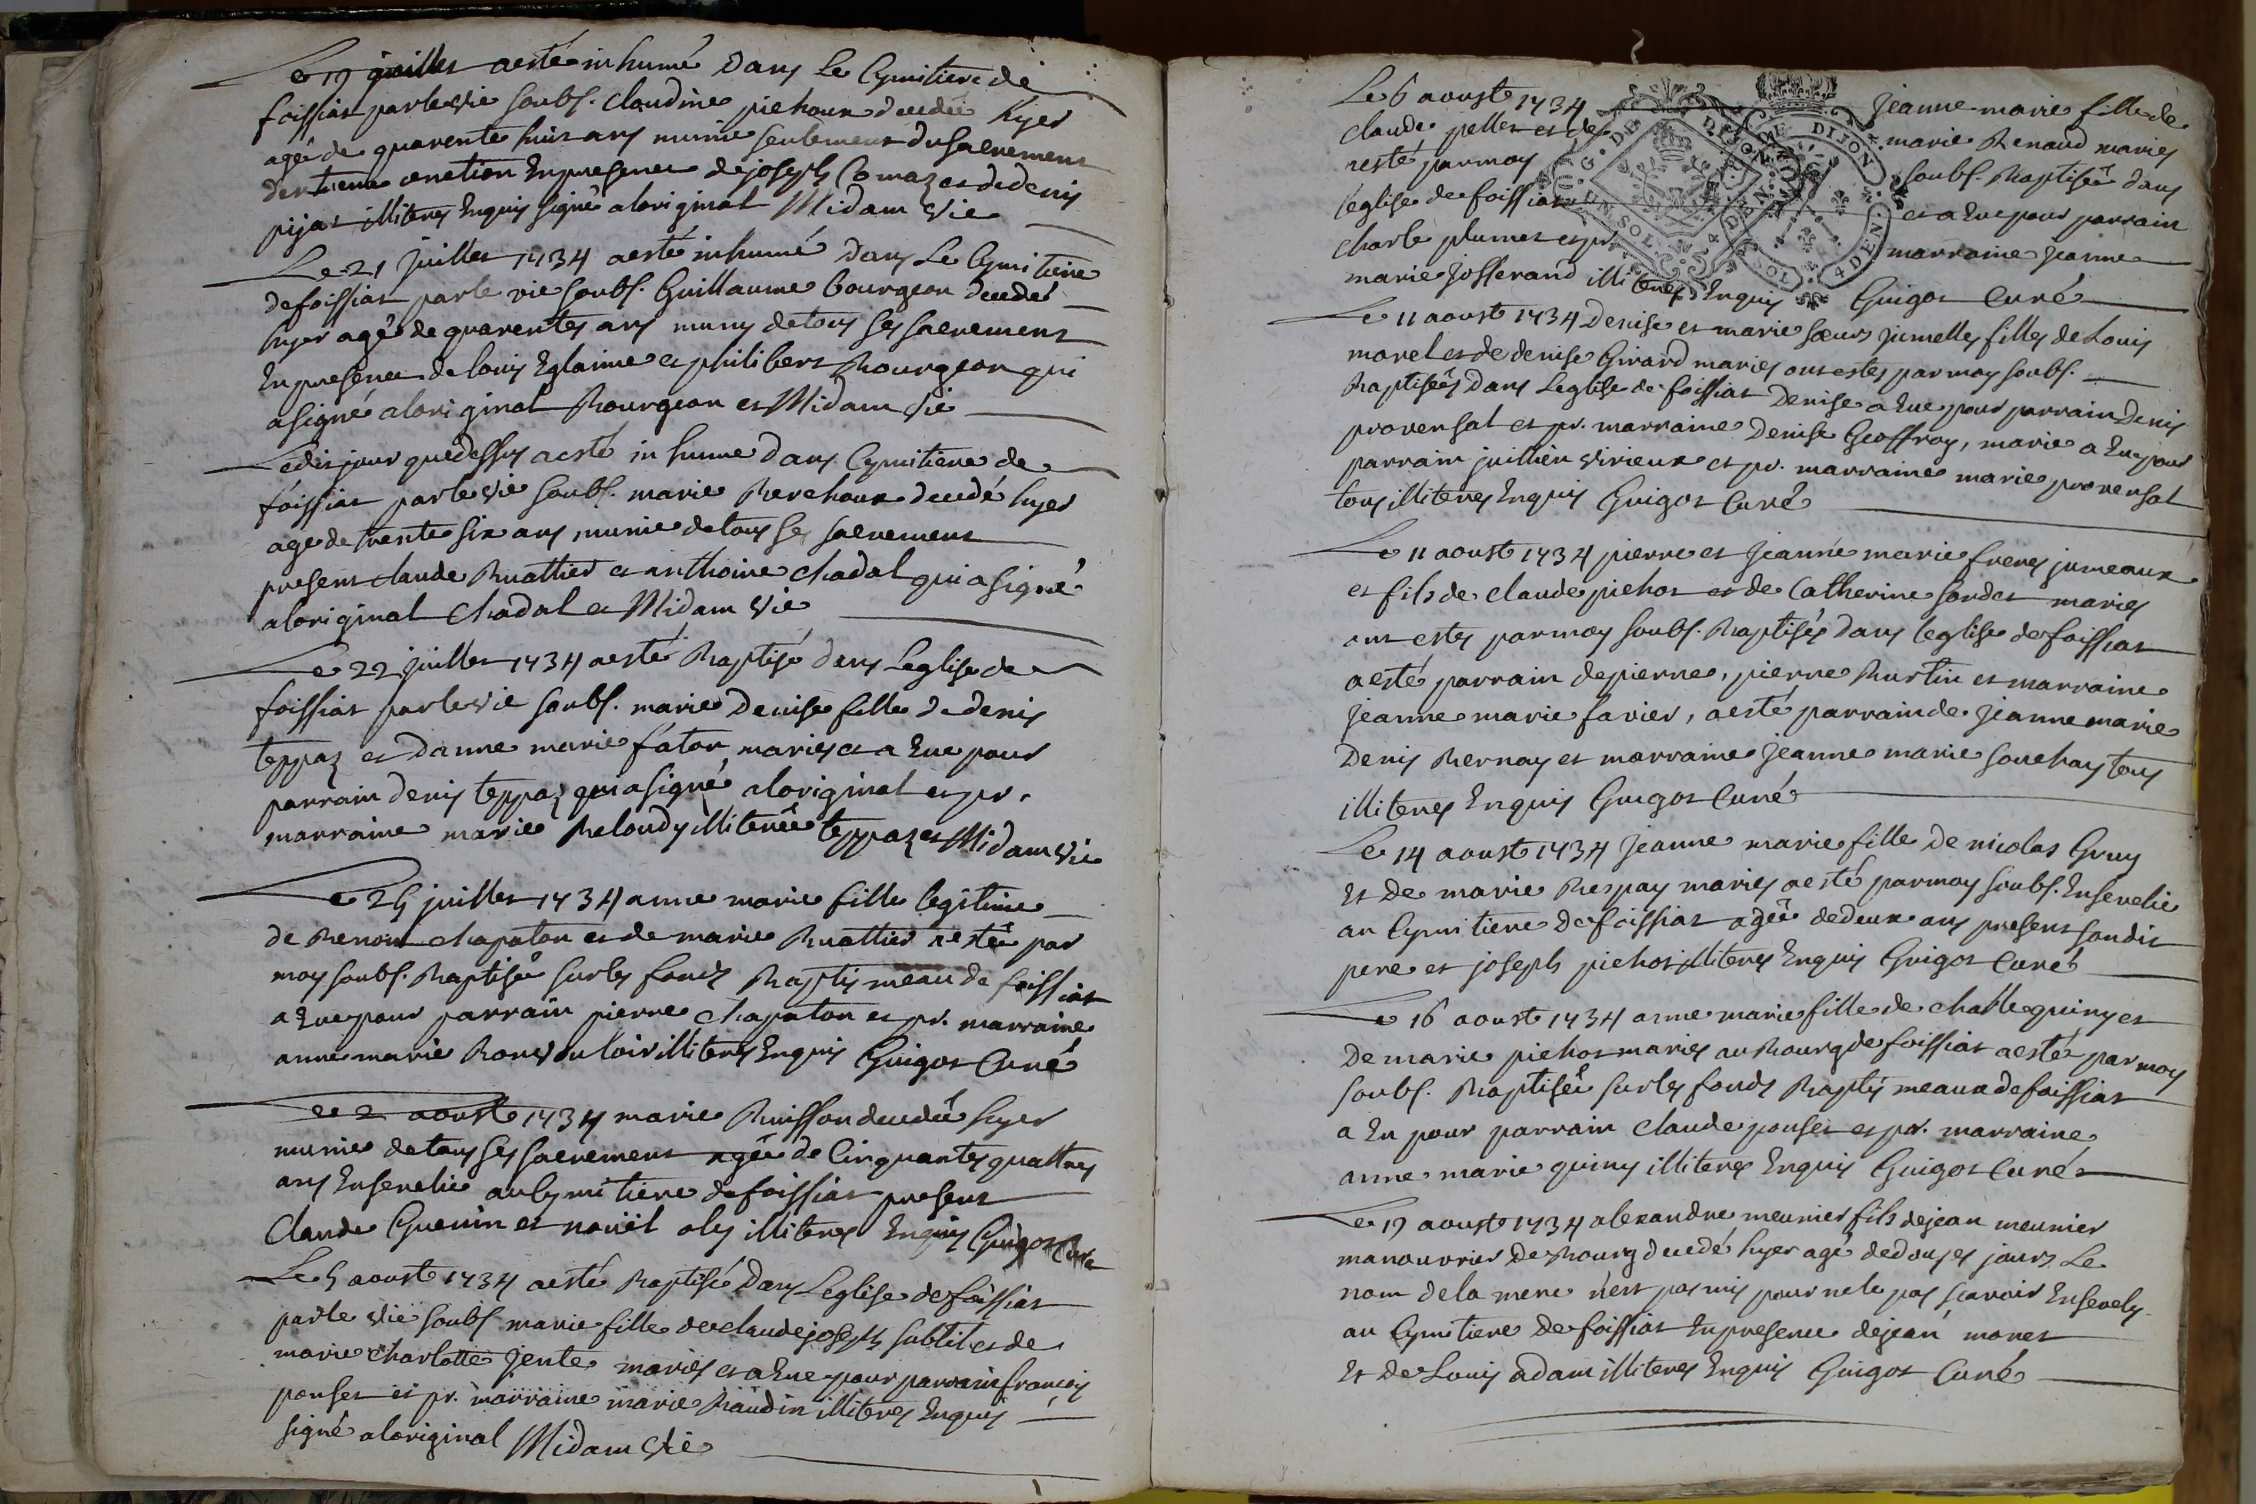 Le 19 juillet a esté inhumé dans Le Cymitiere de
foissiat par le vie soubs. claudine pichoux decedée hyer
agée de quarente huit ans munie seulement du sacrement
onction En presence de joseph Comaz et de denis
pijat illiteres Enquis signé a loriginal Midam vie
Le 21 juillet 1734 a esté inhumé dans Le Cymitiere
de foissiat par le vie soubs. Guillaume bourgeon decedé
hyer agé de quarentes ans muny de tous ses sacrement
En presence de louis Eglaime et philibert Bourgeon qui
a signé a loriginal Bourgeon et Midam vie
Ledit jour que dessus a esté in hume dans Cymitiere de
foissiat par le vie soubs. marie Berchoux decedé hyer
age de trente six ans munie de tous ses sacrement
present claude Buattier et anthoine chadal qui a signé
a loriginal chadal et Midam vie
Le 22 juillet 1734 a esté Baptisé dans Leglise de
foissiat par le vie soubs. marie Denise fille de denis
teppaz et danne marie faton maries et a Eue pour
parrain denis teppaz qui a signé a loriginal et pr.
marraine marie Beloudy illiterée teppaz et Midam vie
Le 25 juillet 1734 anne marie fille legitime
de Benoit chapaton et de marie Buattier a esté par
moy soubs. Baptisé sur les fonds Baptismeau de foissiat
a Eue pour parrain pierre chapaton et pr. marraine
anne marie Bonvouloir illiteres Enquis Guigot Curé
Le 2 aoust 1734 marie Buisson decedée hyer
munie de tous ses sacrement agée de Cinquantes quattres
ans Ensevelie au Cymitiere de foissiat present
Claude Guenin et nouël oly illiteres Enquis Guigot Curé
Le 5 aoust 1734 a esté Baptisé dans Leglise de foissiat
par le vie soubs marie fille de claude joseph subtil et de
marie charlotte jente maries et a Eue pour parrain francois
ponset et pr. marraine marie Baudin illiteres Enquis
signé a loriginal Midam vie
Le 6 aoust 1734 jeanne marie fille de
claude pellet et de marie Renaud maries
a esté par moy soubs. Baptisée dans
leglise de foissiat et a Eue pour parrain
charle plumet et pr. marraine jeanne
marie josserand illiteres Enquis Guigot Curé
G. DE DIJON
UN SOL 4 DEN
DE DIJON
SOL 4 DEN.
Le 11 aoust 1734 Denise et marie sœurs jumelles filles de Louis
morel et de denise Girard maries ont estes par moy soubs.
Baptisées dans Leglise de foissiat Denise a Eue pour parrain denis
provensal et pr. marraine Denise Geoffray, marie a Eue pour
parrain juillien virieux et pr. marraine marie provensal
tous illiteres Enquis Guigot Curé
Le 11 aoust 1734 pierre et jeanne marie freres jumeaux
et fils de claude pichot et de Catherine sordet maries
ont estes par moy soubs. Baptisés dans leglise de foissiat
a esté parrain de pierre, pierre Burtin et marraine
jeanne marie favier, a esté parrain de jeanne marie
Denis Bernay et marraine jeanne marie souchay tous
illiteres Enquis Guigot Curé
Le 14 aoust 1734 jeanne marie fille de nicolas Gruy
Et de marie Respay maries a esté par moy soubs. Ensevelie
au Cymitiere de foissiat agée de deux ans present son dit
pere et joseph pichot illiteres Enquis Guigot Curé
Le 16 aoust 1734 anne marie fille de challe quiny et
De marie pichot maries au Bourg de foissiat a esté par moy
soubs. Baptisée sur les fonds Baptismeaux de foissiat
a Eu pour parrain claude ponset et pr. marraine
anne marie quiny illiteres Enquis Guigot Curé
Le 19 aoust 1734 alexandre meunier fils de jean meunier
manouvrier de Bourg decedé hyer agé de douses jours Le
nom de la mere n'est pas mis pour ne le pas scavoir Ensevely
au Cymitiere de foissiat En presence de jean moret
Et de Louis adam illiteres Enquis Guigot Curé